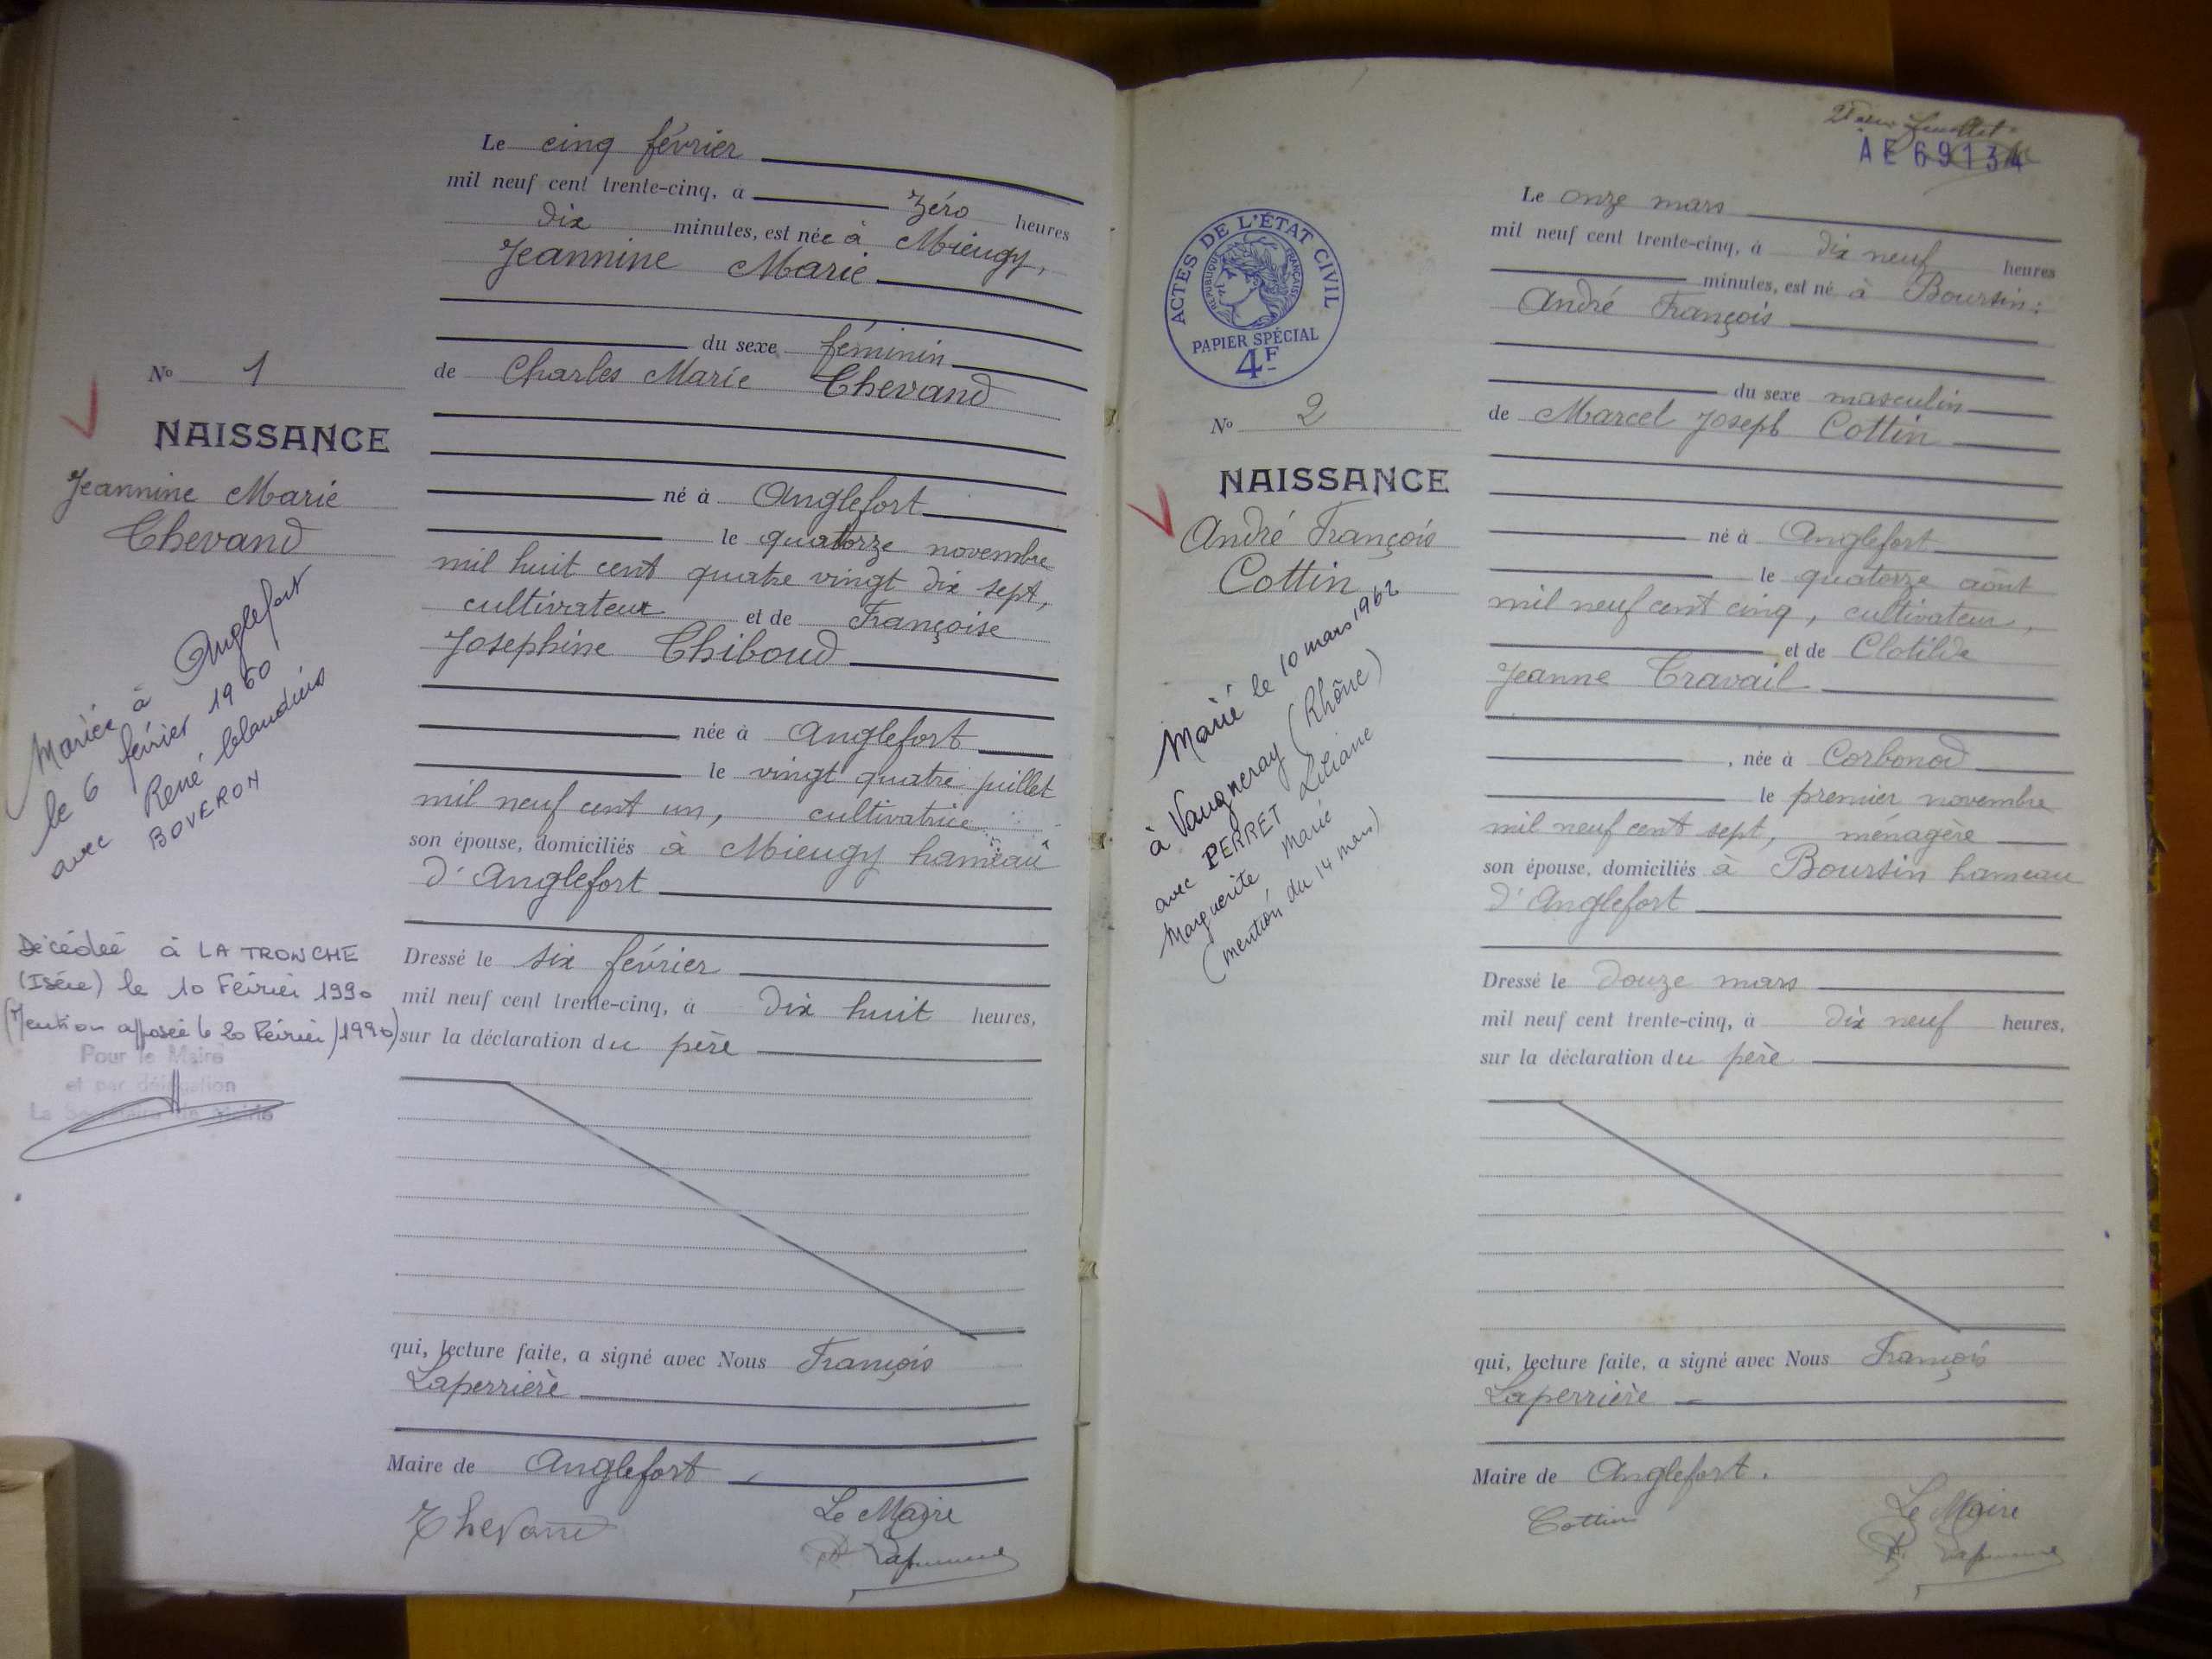 Le cinq février
mil neuf cent trente-cinq, à zéro heures
dix minutes, est née à Mieugy,
Jeannine Marie
du sexe féminin
de Charles Marie Chevand
né à Anglefort
le quatorze novembre
mil huit cent quatre vingt dix sept,
cultivateur et de Françoise
Josephine Thiboud
née à Anglefort
le vingt quatre juillet
mil neuf cent un, cultivatrice
son épouse, domiciliés à Mieugy hameau
d'Anglefort
Dressé le six février
mil neuf cent trente-cinq, à dix huit heures,
sur la déclaration du père
qui, lecture faite, a signé avec Nous François
Laperrière
Maire de Anglefort
Chevand
Le Maire
Nº 1
NAISSANCE
Jeannine Marie
Chevand
Mariée à Anglefort
le 6 février 1960
avec René Claudius
BOVERON
Décédée à LA TRONCHE
(Isère) le 10 Février 1990
(Mention apposée le 20 Février 1990)
Pour le Maire
et par délégation
2ème feuillet
AE 69134
ACTES DE L'ÉTAT CIVIL
RÉPUBLIQUE FRANÇAISE
PAPIER SPÉCIAL
4F
Nº 2
NAISSANCE
André François
Cottin
Marié le 10 mars 1962
à Vaugneray (Rhône)
avec PERRET Liliane
Marguerite Marie
(mention du 14 mars)
Le onze mars
mil neuf cent trente-cinq, à dix neuf heures
minutes, est né à Boursin:
André François
du sexe masculin
de Marcel Joseph Cottin
né à Anglefort
le quatorze août
mil neuf cent cinq, cultivateur,
et de Clotilde
Jeanne Travail
, née à Corbonod
le premier novembre
mil neuf cent sept, ménagère
son épouse, domiciliés à Boursin hameau
d'Anglefort
Dressé le douze mars
mil neuf cent trente-cinq, à dix neuf heures,
sur la déclaration du père
qui, lecture faite, a signé avec Nous François
Laperrière
Maire de Anglefort.
Cottin
Le Maire